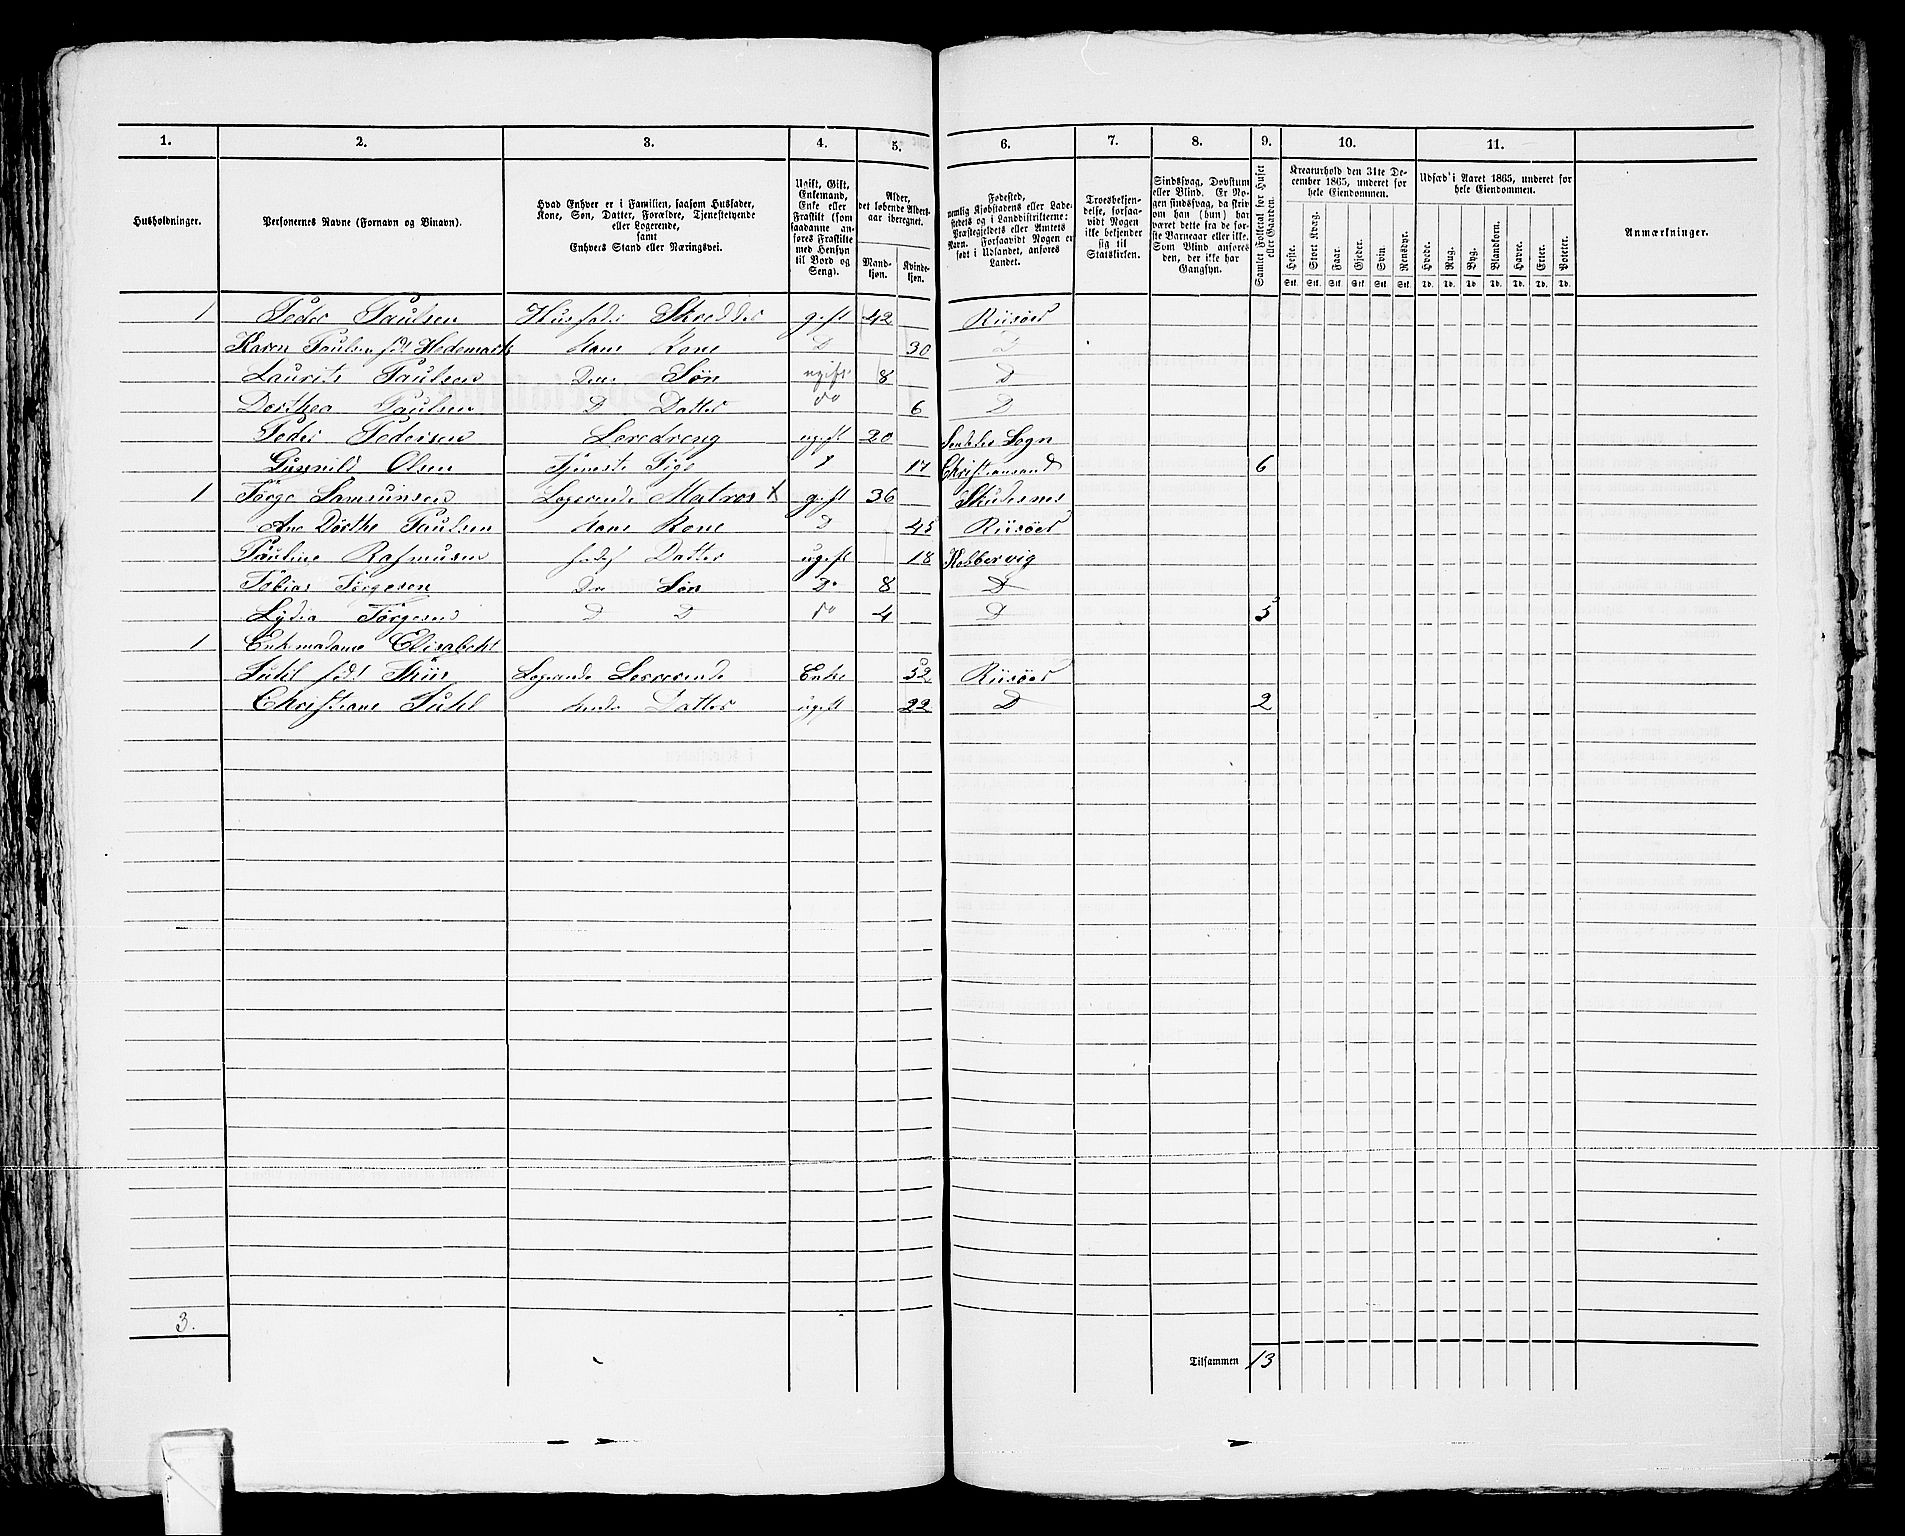 1. 2. 3. 4. 5. 6. 7. 8. 9. 10. 11.
Husholdninger.
Personernes Navne (Fornavn og Binavn).
Hvad Enhver er i Familien, saasom Husfader,
Kone, Søn, Datter, Forældre, Tjenestetyende
eller Logerende,
samt
Enhvers Stand eller Næringsvei.
Ugift, Gift,
Enkemand,
Enke eller
Fraskilt (som
saadanne an-
føres Fraskilte
med Hensyn
til Bord og
Seng).
Alder,
det løbende Alders-
aar iberegnet.
Mand-
kjøn.
Kvinde-
kjøn.
Fødested,
nemlig Kjøbstadens eller Lade-
stedets og i Landdistrikterne:
Præstegjeldets eller Amtets
Navn. Forsaavidt Nogen er
født i Udlandet, anføres
Landet.
Troesbekjen-
delse, forsaa-
vidt Nogen
ikke bekjender
sig til
Statskirken.
Sindssvag, Døvstum
eller Blind. Er No-
gen sindssvag, da skriv
om han (hun) har
været dette fra de før-
ste Barneaar eller ikke.
Som Blind anføres
den, der ikke har
Gangsyn.
Samlet Folketal for Huset
eller Gaarden.
Kreaturhold den 31te De-
cember 1865, underet for
hele Eiendommen.
Heste. Stort Kvæg. Faar. Gjeder. Svin. Rensdyr.
Stk. Stk. Stk. Stk. Stk. Stk.
Udsæd i Aaret 1865, underet for
hele Eiendommen.
Hvede. Rug. Byg. Blandkorn. Havre. Erter. Poteter.
Td. Td. Td. Td. Td. Td. Td.
Anmærkninger.
1 Peder Paulsen Husfader Skredder gift 42 Riisøer
Karen Paulsen fdt Hedemark hans Kone D 30 D
Laurits Paulsen Deres Søn ugift 8 D
Dorthea Paulsen D Datter do 6 D
Peder Pedersen Leredreng ugift 20 Sogn
Gunnild Olsen Tjeneste Pige D 17 Christiansand 6
1 Tørge Samsunsen Logerende Matros X gift 36 Skudesnes
Ane Dorthe Paulsen hans Kone D 45 Riisøer
Pauline Rasmusen Datter ugift 18 Kolbervig
Tobias Tørgesen Søn Do 8 D
Lydia Tørgesen D D do 4 D 5
1 Enkemadame Elisabeht
Juhl født Logerende Enke 52 Riisøer
Christiane Juhl hendes Datter ugift 22 D 2
3.
Tilsammen 13